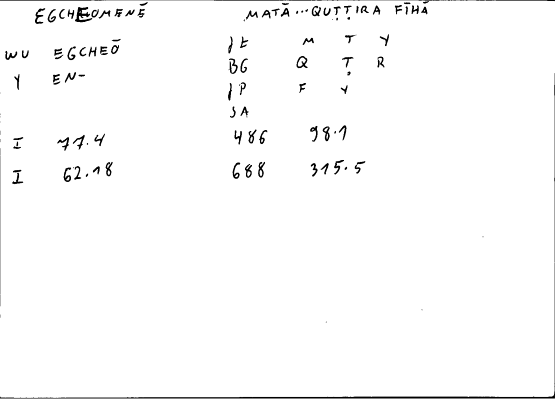 EGCHEOMENĒ MATĀ...QUṬṬIRA FĪHĀ
WU EGCHEŌ JE M T Y
Y EN- BG Q Ṭ R
JP F Y
SA
I 77.4 486 98.1
I 62.18 688 315.5